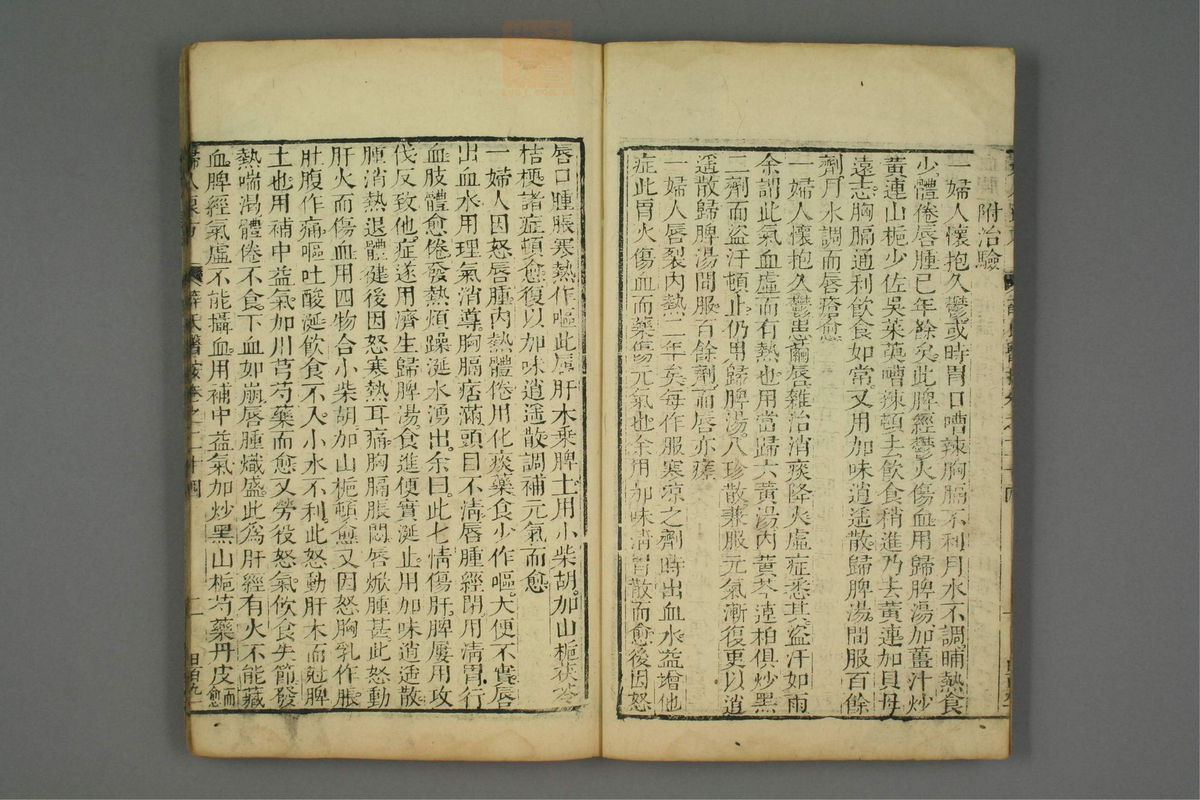 附治驗
一婦人懷抱久鬱或時胃口嘈辣胸膈不利月水不調晡熱食
少體倦唇腫已年餘矣此脾經鬱火傷血用歸脾湯加薑汁炒
黃連山梔少佐吳茱萸嘈辣頓去飲食稍進乃去黃連加貝母
遠志胸膈通利飲食如常又用加味逍遙散歸脾湯間服百餘
劑月水調而唇瘡愈
一婦人懷抱久鬱患繭唇雜治消痰降火虛症悉具盜汗如雨
余謂此氣血虛而有熱也用當歸六黃湯內黃芩連柏俱炒黑
二劑而盜汗頓止仍用歸脾湯八珍散兼服元氣漸復更以逍
遙散歸脾湯間服百餘劑而唇亦瘥
一婦人唇裂內熱二年矣每作服寒凉之劑時出血水益增他
症此胃火傷血而藥傷元氣也余用加味清胃散而愈後因怒
唇口腫脹寒熱作嘔此屬肝木乘脾土用小柴胡加山梔茯苓
桔梗諸症頓愈復以加味逍遙散調補元氣而愈
一婦人因怒唇腫內熱體倦用化痰藥食少作嘔大便不實唇
出血水用理氣消導胸膈痞滿頭目不清唇腫經閉用清胃行
血肢體愈倦發熱煩躁涎水湧出余曰此七情傷肝脾屢用攻
伐反致他症遂用濟生歸脾湯食進便實涎止用加味逍遙散
腫消熱退體健後因怒寒熱耳痛胸膈脹悶唇焮腫甚此怒動
肝火而傷血用四物合小柴胡加山梔頓愈又因怒胸乳作脹
肚腹作痛嘔吐酸涎飲食不入小水不利此怒動肝木而尅脾
土也用補中益氣加川芎芍藥而愈又勞役怒氣飲食失節發
熱喘渴體倦不食下血如崩唇腫熾盛此為肝經有火不能藏
血脾經氣虛不能攝血用補中益氣加炒黑山梔芍藥丹皮而愈